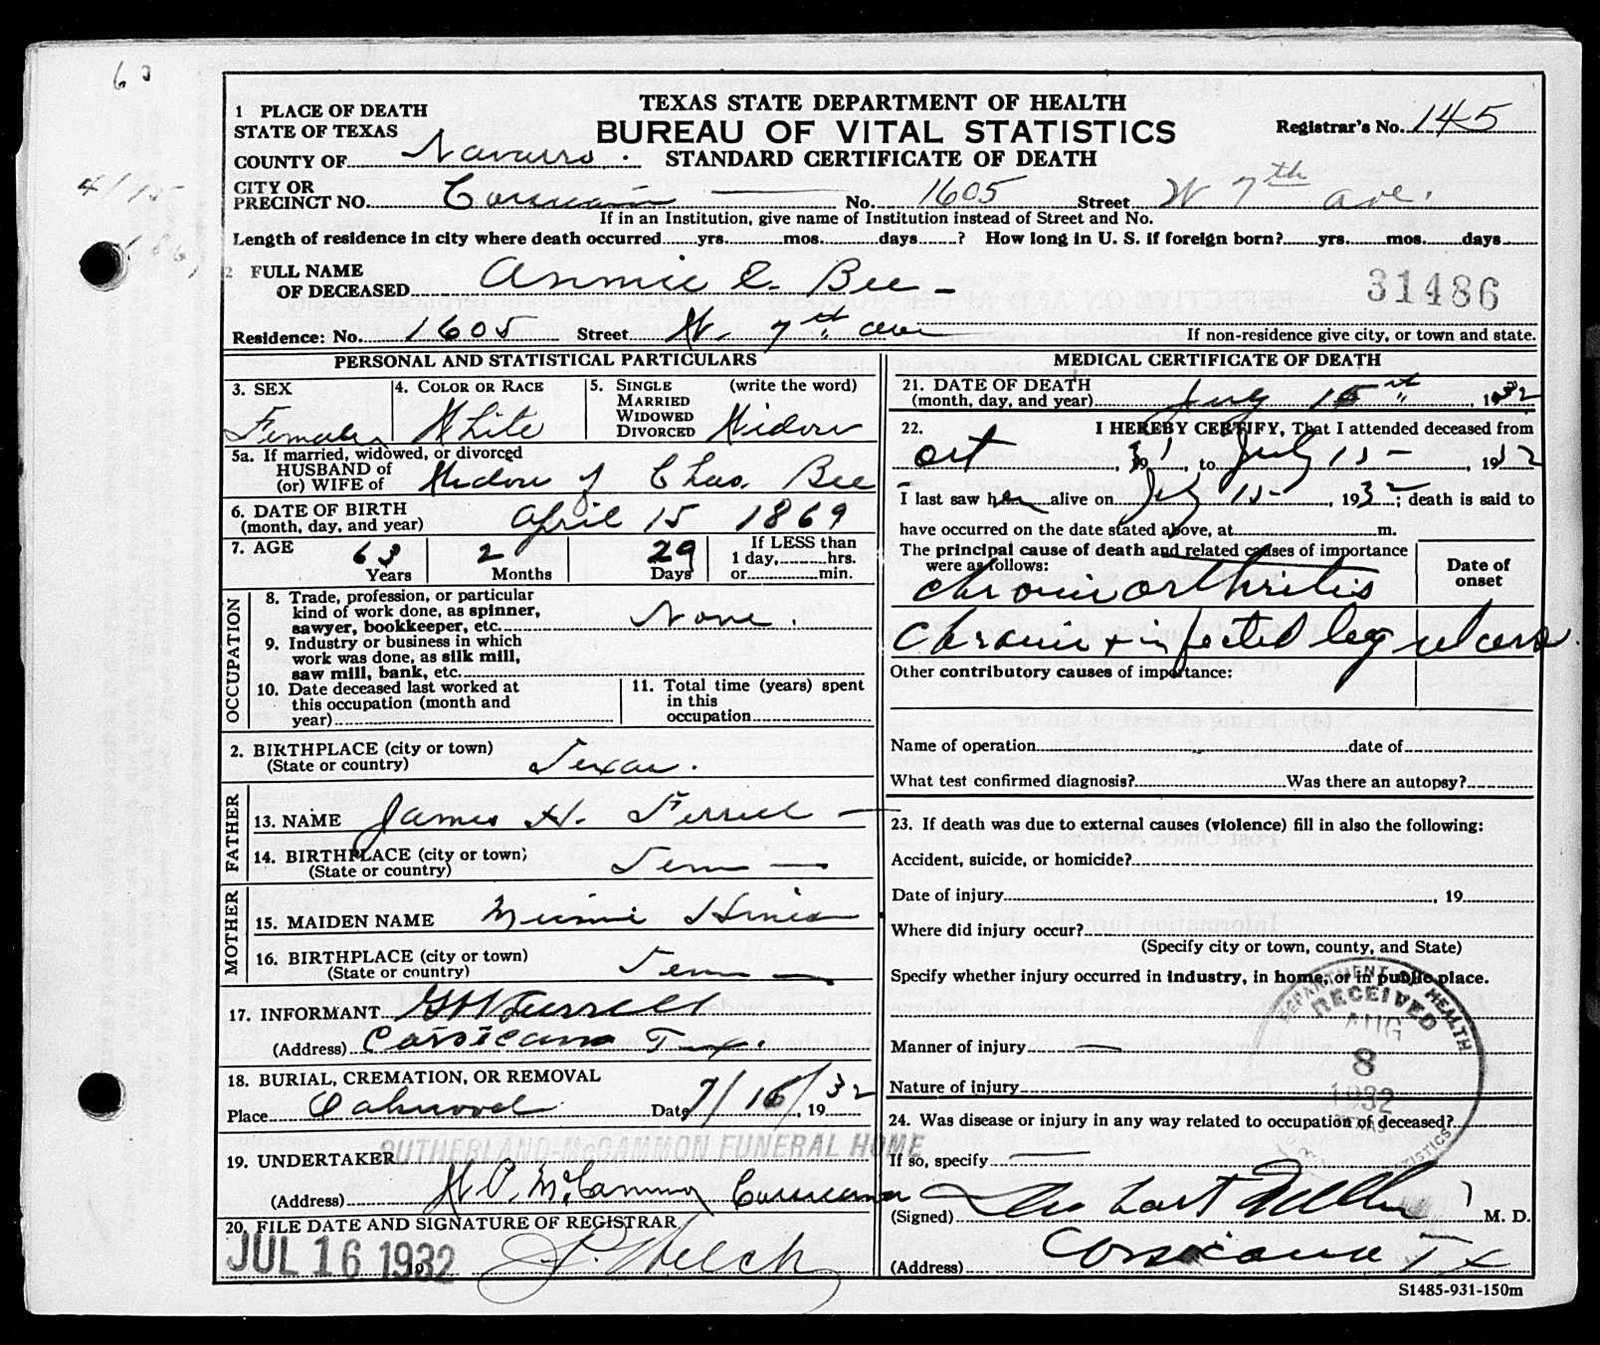 60
1 PLACE OF DEATH
STATE OF TEXAS
COUNTY OF Navarro.
TEXAS STATE DEPARTMENT OF HEALTH
BUREAU OF VITAL STATISTICS
STANDARD CERTIFICATE OF DEATH
Registrar's No. 145
CITY OR
PRECINCT NO. Corsicana No. 1605 Street W 7th ave.
If in an Institution, give name of Institution instead of Street and No.
Length of residence in city where death occurred yrs. mos. days ? How long in U. S. if foreign born? yrs. mos. days
2 FULL NAME
OF DECEASED Annie E. Bee -
31486
Residence: No. 1605 Street W. 7th ave
If non-residence give city, or town and state.
PERSONAL AND STATISTICAL PARTICULARS
3. SEX
Female
4. COLOR OR RACE
White
5. SINGLE (write the word)
MARRIED
WIDOWED
DIVORCED Widow
5a. If married, widowed, or divorced
HUSBAND of
(or) WIFE of Widow of Chas. Bee
6. DATE OF BIRTH
(month, day, and year) April 15 1869
7. AGE
63 Years
2 Months
29 Days
If LESS than
1 day, hrs.
or min.
OCCUPATION
8. Trade, profession, or particular
kind of work done, as spinner,
sawyer, bookkeeper, etc. None.
9. Industry or business in which
work was done, as silk mill,
saw mill, bank, etc.
10. Date deceased last worked at
this occupation (month and
year)
11. Total time (years) spent
in this
occupation
2. BIRTHPLACE (city or town)
(State or country) Texas.
FATHER
13. NAME James H. Ferrell
14. BIRTHPLACE (city or town)
(State or country) Tenn
MOTHER
15. MAIDEN NAME Minnie
16. BIRTHPLACE (city or town)
(State or country) Tenn
17. INFORMANT
(Address) Corsicana Tex.
18. BURIAL, CREMATION, OR REMOVAL
Place Oakwood Date 7/16/1932
SUTHERLAND-McCAMMON FUNERAL HOME
19. UNDERTAKER
(Address) H.P. McCammon Corsicana
20. FILE DATE AND SIGNATURE OF REGISTRAR
JUL 16 1932 Welch
MEDICAL CERTIFICATE OF DEATH
21. DATE OF DEATH
(month, day, and year) July 15 1932
22. I HEREBY CERTIFY, That I attended deceased from
Oct 31, to July 15 - 1932
I last saw her alive on July 15 - 1932; death is said to
have occurred on the date stated above, at m.
The principal cause of death and related causes of importance
were as follows:
Date of
onset
Chronic arthritis
Chronic + infected leg ulcers.
Other contributory causes of importance:
Name of operation date of
What test confirmed diagnosis? Was there an autopsy?
23. If death was due to external causes (violence) fill in also the following:
Accident, suicide, or homicide?
Date of injury , 19
Where did injury occur?
(Specify city or town, county, and State)
Specify whether injury occurred in industry, in home, or in public place.
Manner of injury
Nature of injury
DEPARTMENT OF HEALTH
RECEIVED
AUG
8
1932
24. Was disease or injury in any way related to occupation of deceased?
If so, specify
(Signed) M. D.
(Address) Corsicana Tx
S1485-931-150m